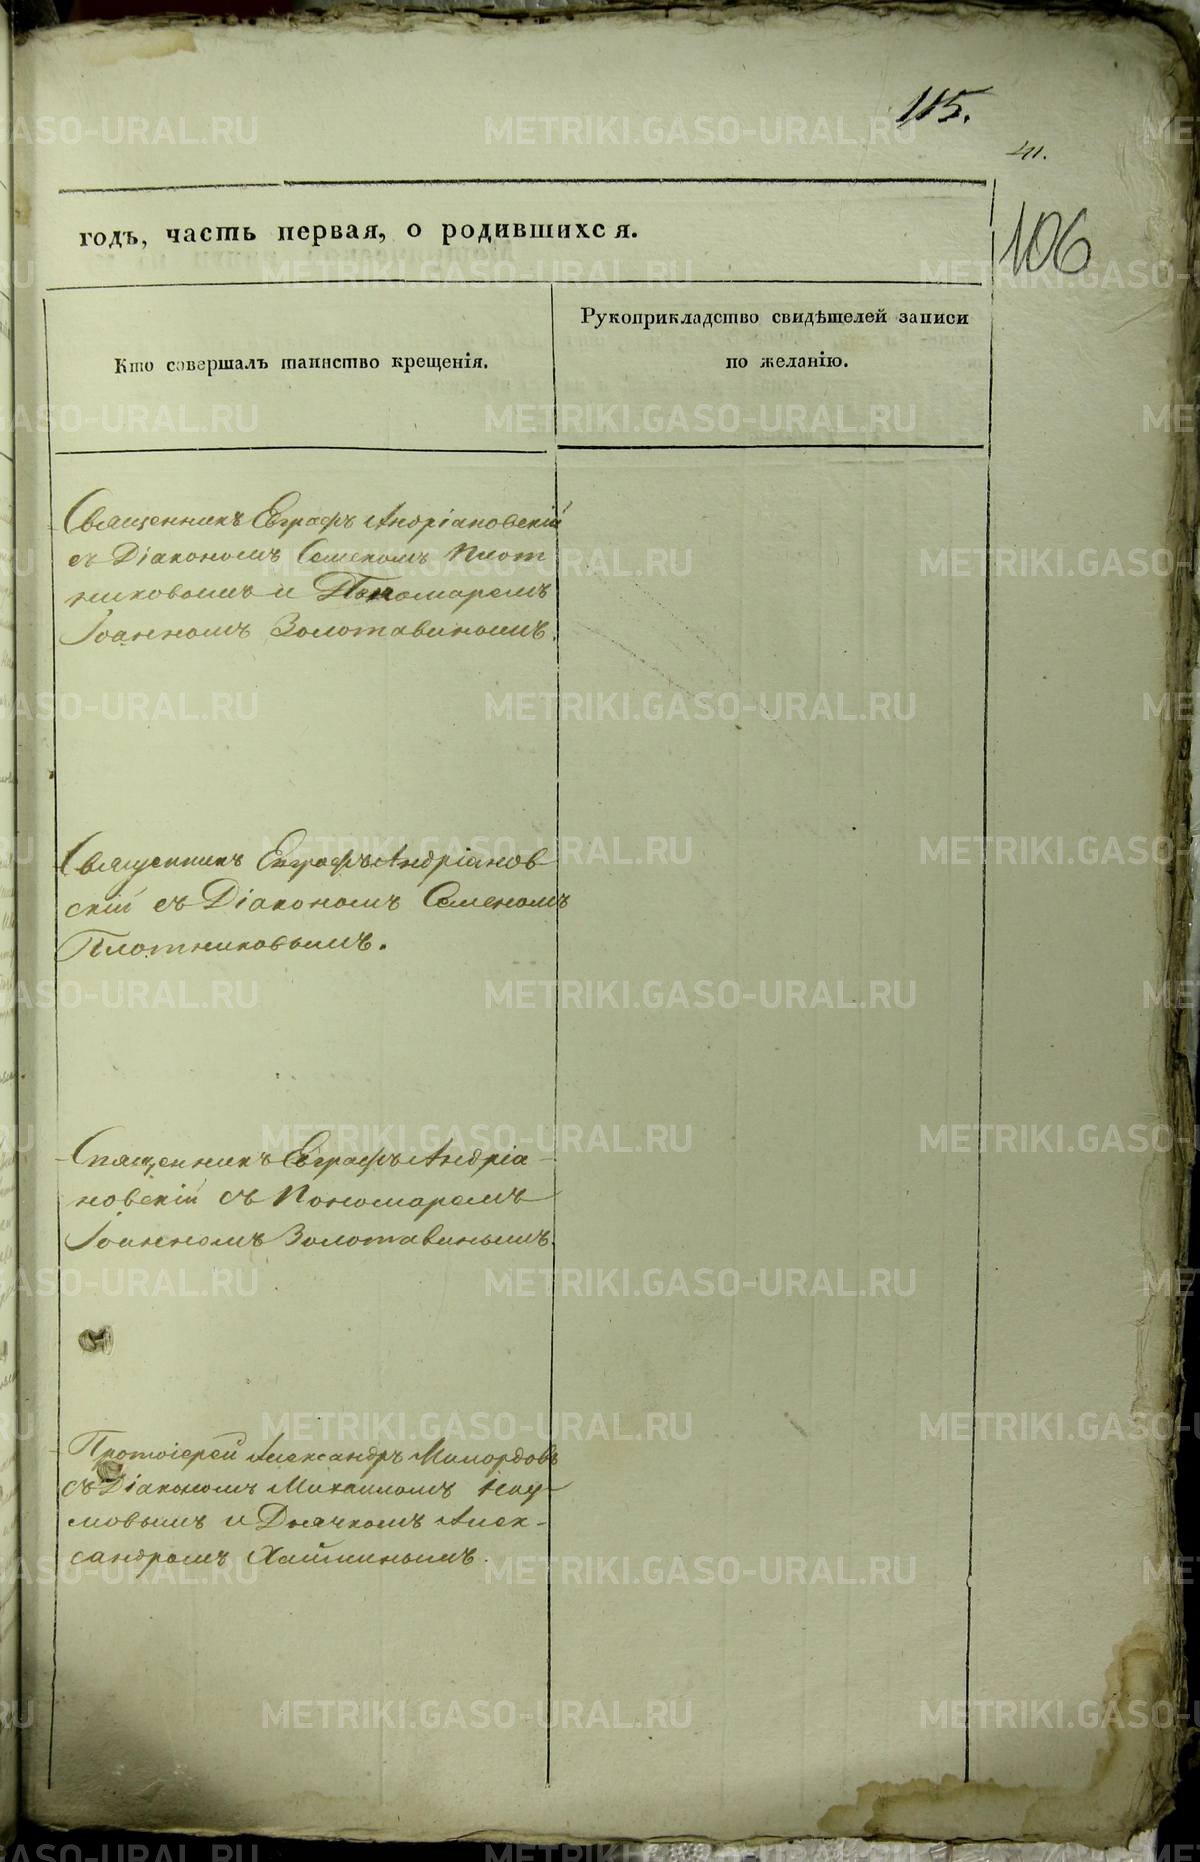 115.
41.
106
годъ, часть первая, о родившихся.
Кто совершалъ таинство крещенія.
Рукоприкладство свидѣтелей записи
по желанію.
Священникъ Евграфъ Андріановскій
съ Діакономъ Семеномъ Плот
никовымъ и Пономаремъ
Іоанномъ Золотавинымъ.
Священникъ Евграфъ Андріанов
скій съ Діакономъ Семеномъ
Плотниковымъ.
Священникъ Евграфъ Андріа
новскій съ Пономаремъ
Іоанномъ Золотавинымъ.
Протоіерей Александръ Милордовъ
съ Діакономъ Михаиломъ Нау
мовымъ и Дьячкомъ Алек-
сандромъ Хаминымъ.
METRIKI.GASO-URAL.RU